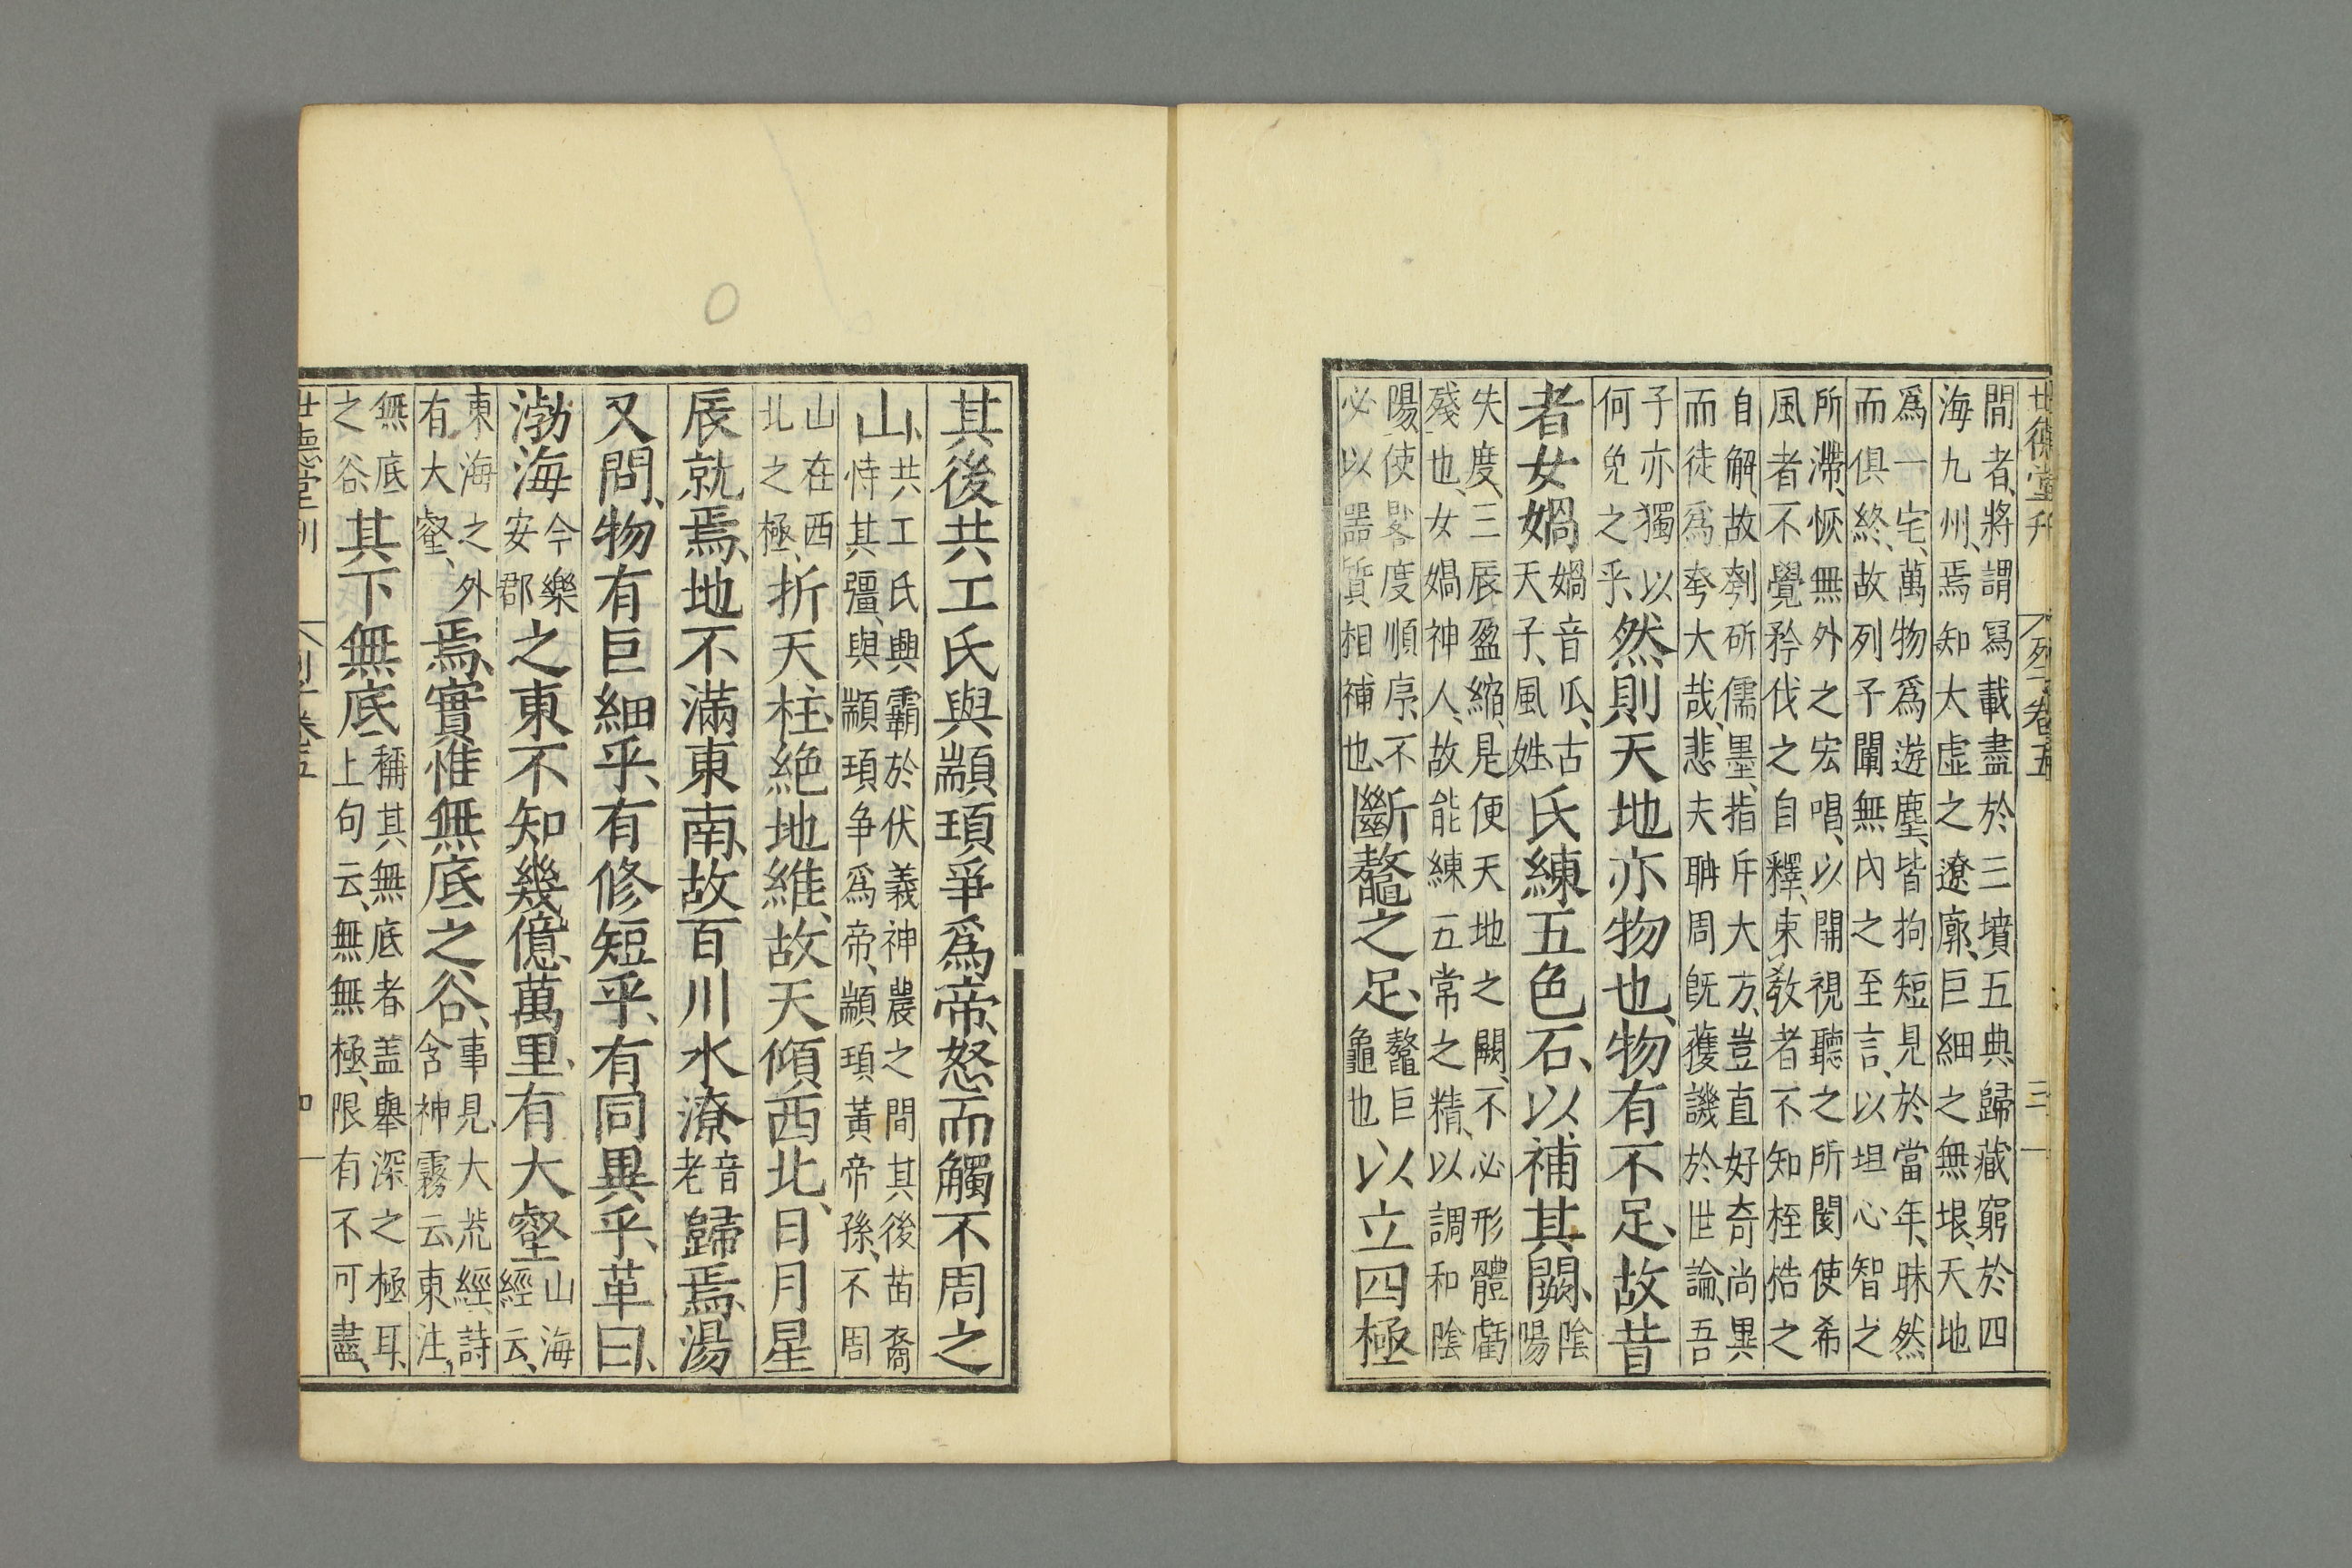 世德堂刊 列子卷五 三
間者、將謂冩載盡於三墳五典歸藏窮於四
海九州、焉知大虚之遼廓、巨細之無垠、天地
爲一宅、萬物爲遊塵、皆拘短見於當年、昧然
而俱終、故列子闡無內之至言、以坦心智之
所滯、恢無外之宏唱、以開視聽之所閡使希
風者不覺矜伐之自釋、束教者不知桎梏之
自解、故刳斫儒墨、指斥大方、豈直好奇尚異
而徒爲夸大哉、悲夫聃周旣獲譏於世論、吾
子亦獨以
何免之乎、
然則天地亦物也、物有不足、故昔
者女媧
媧音瓜、古
天子、風姓
氏練五色石、以補其闕、
陰
陽
失度、三辰盈縮、是便天地之闕、不必形體虧
殘也、女媧神人、故能練五常之精、以調和陰
陽、使晷度順序、不
必以噐質相補也、
斷鼇之足、
鼇巨
龜也
以立四極
其後共工氏與顓頊爭爲帝、怒而觸不周之
山、
共工氏興霸於伏羲神農之間其後苗裔
恃其彊、與顓頊争爲帝、顓頊黃帝孫、不周
山在西
北之極、
折天柱、絶地維、故天傾西北、日月星
辰就焉、地不滿東南、故百川水潦
音
老
歸焉、湯
又問、物有巨細乎、有修短乎、有同異乎、革曰、
渤海
今樂
安郡
之東不知幾億萬里、有大壑
山海
經云、
東海之外
有大壑、
焉、實惟無底之谷、
事見大荒經、詩
含神霧云、東注、
無底
之谷
其下無底、
稱其無底者盖舉深之極耳、
上句云、無無極、限有不可盡、
世德堂刊 列子卷五 四